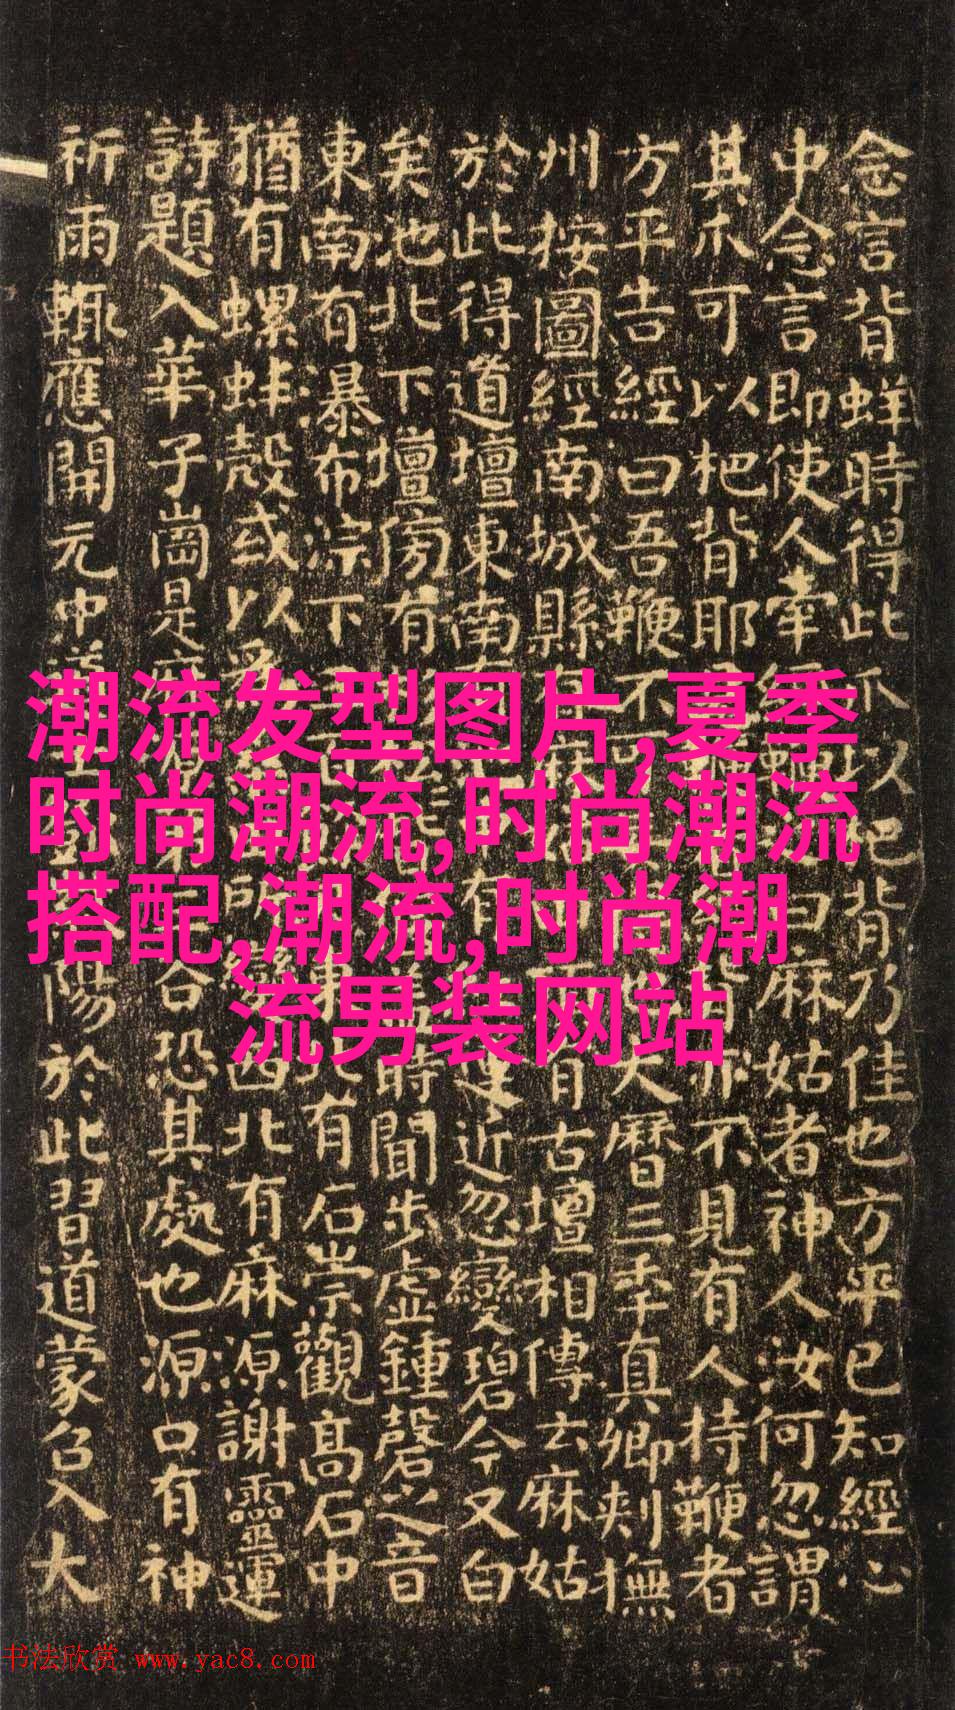 念言背蛘時得此爪以把背乃佳也方平已知經心
中念言即使人牽經曰麻姑者神人汝何忽謂
其不可以把背耶亦不見有人持鞭者
方平告經曰吾鞭不可大曆三年真卿刺撫
州按圖經南城縣有古壇相傳云麻姑
於此得道壇東南有近忽變碧今又白
矣池北下壇傍有時聞步虛鍾磬之音
東南有瀑布淙下東北有石崇觀高石中
猶有螺蚌殼或以為所變西北有麻源謝靈運
詩題入華子崗是谷恐其處也源口有神
祈雨輒應開元中道陽於此習道蒙召入大
潮流发型图片,夏季
时尚潮流,时尚潮流
搭配,潮流,时尚潮
流男装网站
书法欣赏 www.yac8.com